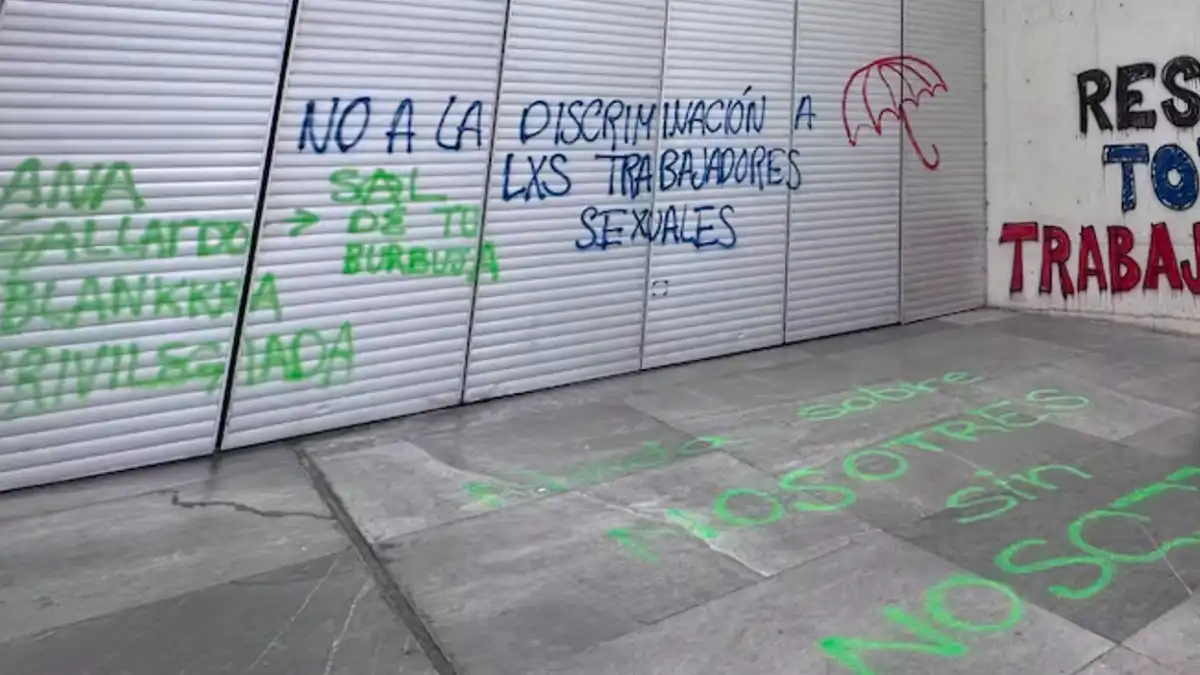 ANA
GALLARDO →
BLANKKKA
PRIVILEGIADA
SAL
DE TU
BURBUJA
NO A LA DISCRIMINACIÓN A
LXS TRABAJADORES
SEXUALES
RES
TO
TRABAJ
sobre
NOSOTRES
sin
NOSOT
NO